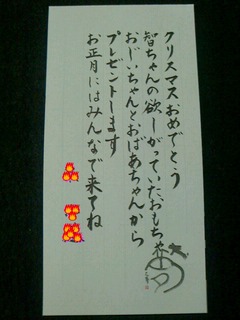 クリスマスおめでとう
智ちゃんの欲しがっていたおもちゃ
おじいちゃんとおばあちゃんから
プレゼントします
お正月にはみんなで来てね